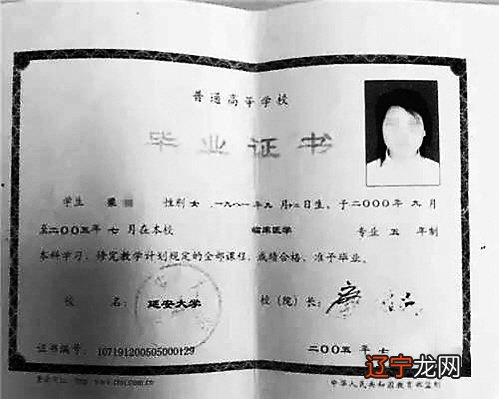 普通高等学校
毕业证书
学生 性别 女 ,一九八一年 九 月十二日生、于二〇〇〇年 九 月
至二〇〇五年 七 月在本校 临床医学 专业 五 年制
本科学习,修完教学计划规定的全部课程,成绩合格,准予毕业。
校 名: 延安大学 校(院)长:
证书编号: 107191200505000129 二〇〇五年 七
中华人民共和国教育部监制
辽宁龙网